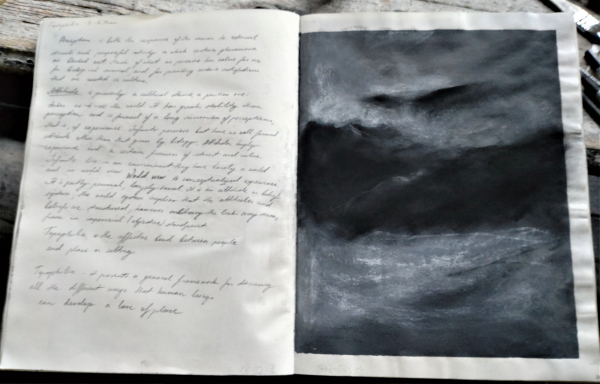 Perception is both the response of the senses to external
stimuli and purposeful activity in which certain phenomena
are clearly registered while others recede in the shade or
are blocked out. Much of what we perceive has value for us
for biological survival, and for providing certain satisfactions
that are rooted in culture.
Attitude is primarily a cultural stance, a position one
takes vis-a-vis the world. It has greater stability than
perception and is formed of a long succession of perceptions,
that is, of experience. Infants perceive but have no well formed
attitude other than that given by biology. Attitudes imply
experience and a certain firmness of interest and value.
Infants live in an environment; they have barely a world
and no world view. World view is conceptualized experience.
It is partly personal, largely social. It is an attitude or belief
system; the word system implies that the attitudes and
beliefs are structured, however arbitrary the links may seem,
from an impersonal (objective) standpoint.
Topophilia is the affective bond between people
and place or setting.
Topophilia - it presents a general framework for discussing
all the different ways that human beings
can develop a love of place